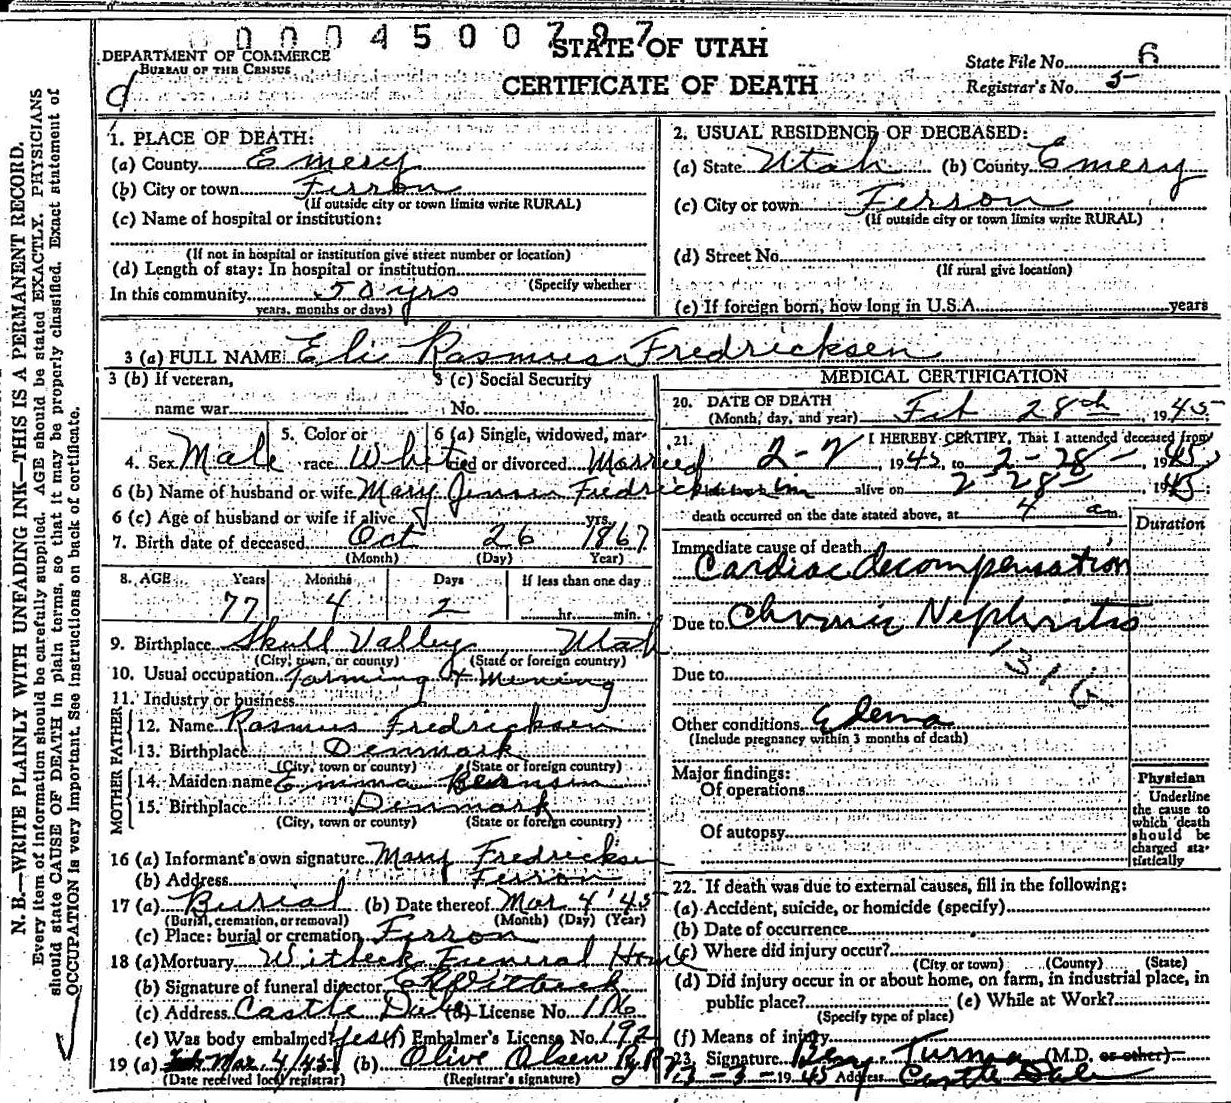 0004500797
STATE OF UTAH
DEPARTMENT OF COMMERCE
BUREAU OF THE CENSUS
CERTIFICATE OF DEATH
State File No. 6
Registrar's No. 5
1. PLACE OF DEATH:
(a) County Emery
(b) City or town Ferron
(If outside city or town limits write RURAL)
(c) Name of hospital or institution:
(If not in hospital or institution give street number or location)
(d) Length of stay: In hospital or institution
(Specify whether
In this community 50 yrs
years, months or days)
2. USUAL RESIDENCE OF DECEASED:
(a) State Utah (b) County Emery
(c) City or town Ferron
(If outside city or town limits write RURAL)
(d) Street No.
(If rural give location)
(e) If foreign born, how long in U.S.A. years
3 (a) FULL NAME Eli Rasmus Fredricksen
3 (b) If veteran, 3 (c) Social Security
name war No.
5. Color or 6 (a) Single, widowed, mar-
4. Sex Male race White ried or divorced Married
6 (b) Name of husband or wife Mary Jensen Fredricksen
6 (c) Age of husband or wife if alive yrs.
7. Birth date of deceased Oct 26 1867
(Month) (Day) (Year)
8. AGE Years Months Days If less than one day
77 4 2 hr. min.
9. Birthplace Skull Valley Utah
(City, town, or county) (State or foreign country)
10. Usual occupation Farming & Mining
11. Industry or business
FATHER
12. Name Rasmus Fredricksen
13. Birthplace Denmark
(City, town or county) (State or foreign country)
MOTHER
14. Maiden name Emma
15. Birthplace Denmark
(City, town or county) (State or foreign country)
16 (a) Informant's own signature Mary Fredricksen
(b) Address Ferron
17 (a) Burial (b) Date thereof Mar 4 '45
(Burial, cremation, or removal) (Month) (Day) (Year)
(c) Place: burial or cremation Ferron
18 (a) Mortuary Witbeck Funeral Home
(b) Signature of funeral director Witbeck
(c) Address Castle Dale (d) License No. 116
(e) Was body embalmed? Yes (f) Embalmer's License No. 192
19 (a) Mar. 4/45 (b) Olive Olsen
(Date received local registrar) (Registrar's signature)
MEDICAL CERTIFICATION
20. DATE OF DEATH
(Month, day, and year) Feb 28th, 1945
21. I HEREBY CERTIFY, That I attended deceased from
2-2, 1945, to 2-28, 1945
alive on 2-28, 1945
death occurred on the date stated above, at 4 a m.
Duration
Immediate cause of death
Cardiac decompensation
Due to Chronic Nephritis
Due to
131
Other conditions Edema
(Include pregnancy within 3 months of death)
Major findings:
Of operations
Of autopsy
Physician
Underline
the cause to
which death
should be
charged sta-
tistically
22. If death was due to external causes, fill in the following:
(a) Accident, suicide, or homicide (specify)
(b) Date of occurrence
(c) Where did injury occur?
(City or town) (County) (State)
(d) Did injury occur in or about home, on farm, in industrial place, in
public place? (e) While at Work?
(Specify type of place)
(f) Means of injury
23. Signature Turman (M.D. or other)
3-3-1945 Address Castle Dale
N. B.—WRITE PLAINLY WITH UNFADING INK—THIS IS A PERMANENT RECORD.
Every item of information should be carefully supplied. AGE should be stated EXACTLY. PHYSICIANS
should state CAUSE OF DEATH in plain terms, so that it may be properly classified. Exact statement of
OCCUPATION is very important. See instructions on back of certificate.